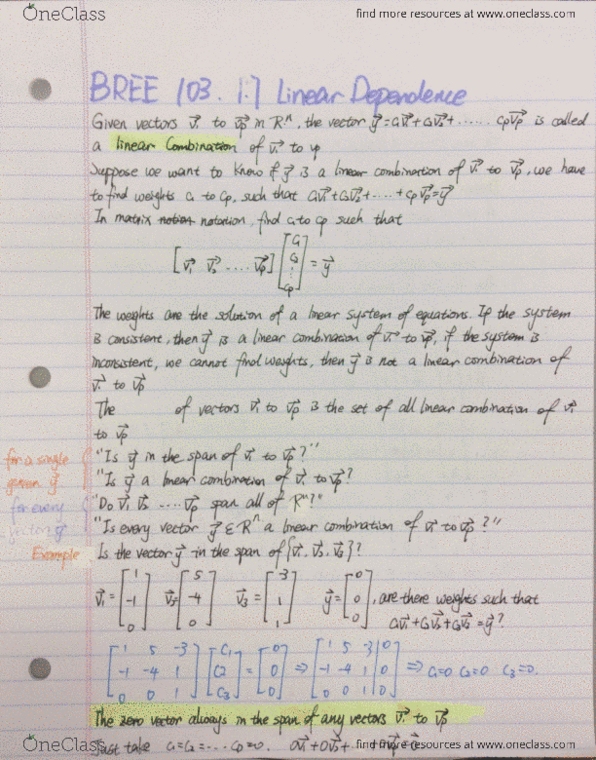 OneClass
find more resources at www.oneclass.com
BREE 103. 1.7 Linear Dependence
Given vectors v₁ to vp in Rⁿ, the vector y = c₁v₁ + c₂v₂ + ...... cpvp is called
a linear Combination of v₁ to vp
Suppose we want to know if y is a linear combination of v₁ to vp, we have
to find weights c₁ to cp, such that c₁v₁ + c₂v₂ + .... + cpvp = y
In matrix notion notation, find c₁ to cp such that
[v₁ v₂ .... vp] [c₁ c₂ ⋮ cp] = y
The weights are the solution of a linear system of equations. If the system
is consistent, then y is a linear combination of v₁ to vp, if the system is
inconsistent, we cannot find weights, then y is not a linear combination of
v₁ to vp
The of vectors v₁ to vp is the set of all linear combination of v₁
to vp
for a single "Is y in the span of v₁ to vp?"
given y "Is y a linear combination of v₁ to vp?
for every "Do v₁ v₂ .... vp span all of Rⁿ?"
vector y "Is every vector y ∈ Rⁿ a linear combination of v₁ to vp?"
Example Is the vector y in the span of {v₁, v₂, v₃}?
v₁ = [1 -1 0] v₂ = [5 -4 0] v₃ = [-3 1 1] y = [0 0 0], are there weights such that
c₁v₁ + c₂v₂ + c₃v₃ = y?
[1 5 -3] [c₁] [0] [1 5 -3|0]
[-1 -4 1] [c2] = [0] ⇒ [-1 -4 1|0] ⇒ c₁=0 c₂=0 c₃=0.
[0 0 1] [c3] [0] [0 0 1|0]
The zero vector always in the span of any vectors v₁ to vp
Just take c₁ = c₂ = ... cp = 0. 0v₁ + 0v₂ +
OneClass
find more resources at www.oneclass.com